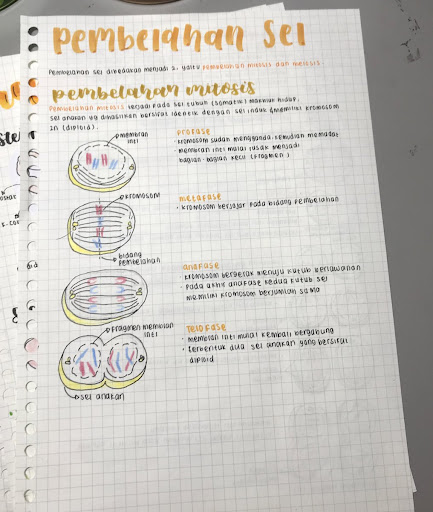 Pembelahan Sel
Pembelahan sel dibedakan menjadi 2, yaitu pembelahan mitosis dan meiosis.
pembelahan mitosis
Pembelahan mitosis terjadi pada sel tubuh (somatik) makhluk hidup,
sel anakan yg dihasilkan bersifat identik dengan sel induk & memiliki kromosom
2n (diploid).
membran
inti
Profase
· kromosom sudah mengganda, kemudian memadat
· membran inti mulai rusak menjadi
bagian-bagian kecil (fragmen)
kromosom
bidang
pembelahan
metafase
· kromosom berjajar pada bidang pembelahan
anafase
· kromosom bergerak menuju kutub berlawanan
pada akhir anafase kedua kutub sel
memiliki kromosom berjumlah sama
fragmen membran
inti
sel anakan
Telofase
· membran inti mulai kembali bergabung
· terbentuk dua sel anakan yang bersifat
diploid